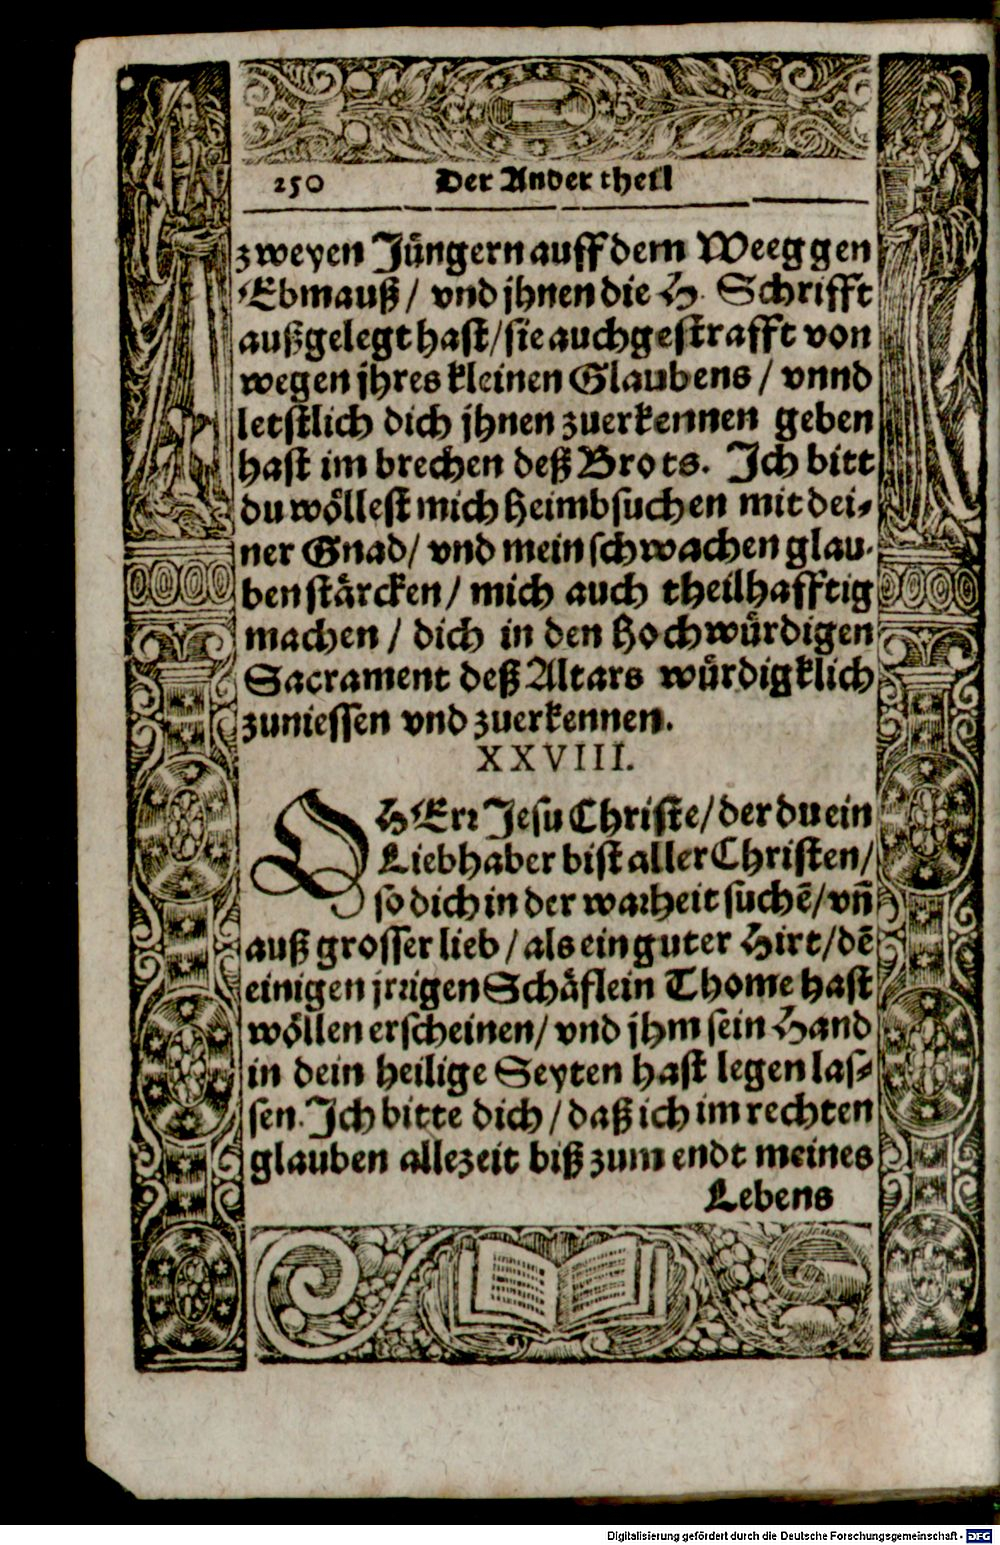 250 Der Ander theil
zweyen Jüngern auff dem Weeg gen
Ebmauß / vnd jhnen die H. Schrifft
außgelegt hast / sie auch gestrafft von
wegen jhres kleinen Glaubens / vnnd
letstlich dich jhnen zuerkennen geben
hast im brechen deß Brots. Ich bitt
du wöllest mich heimbsuchen mit dei-
ner Gnad / vnd mein schwachen glau-
ben stärcken / mich auch theilhafftig
machen / dich in den hochwürdigen
Sacrament deß Altars würdigklich
zuniessen vnd zuerkennen.
XXVIII.
O HErr Jesu Christe / der du ein
Liebhaber bist aller Christen /
so dich in der warheit suchẽ / vñ
auß grosser lieb / als ein guter Hirt / dẽ
einigen jrrigen Schäflein Thome hast
wöllen erscheinen / vnd jhm sein Hand
in dein heilige Seyten hast legen las-
sen. Ich bitte dich / daß ich im rechten
glauben allezeit biß zum endt meines
Lebens
Digitalisierung gefördert durch die Deutsche Forschungsgemeinschaft - DFG